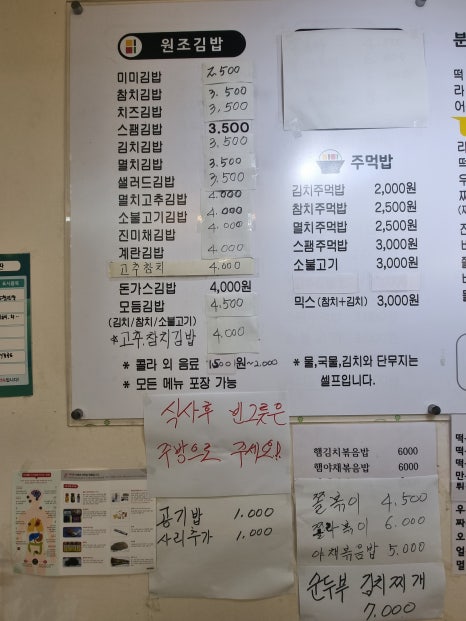 원조김밥
미미김밥 2.500
참치김밥 3.500
치즈김밥 3,500
스팸김밥 3.500
김치김밥 3.500
멸치김밥 3.500
샐러드김밥 3.500
멸치고추김밥 4.000
소불고기김밥 4.000
진미채김밥 4.000
계란김밥 4.000
고추참치 4.000
돈가스김밥 4,000원
모듬김밥 4.500
(김치/참치/소불고기)
*고추.참치김밥 4.000
* 콜라 외 음료 1500원~2.000
* 모든 메뉴 포장 가능
주먹밥
김치주먹밥 2,000원
참치주먹밥 2,500원
멸치주먹밥 2,500원
스팸주먹밥 3,000원
소불고기 3,000원
믹스 (참치+김치) 3,000원
* 물,국물,김치와 단무지는
셀프입니다.
식사후 빈그릇은
주방으로 주세요!!
공기밥 1.000
사리추가 1.000
햄김치볶음밥 6000
햄야채볶음밥 6000
쫄볶이 4,500
쫄라볶이 6.000
야채볶음밥 5.000
순두부 김치찌개
7.000